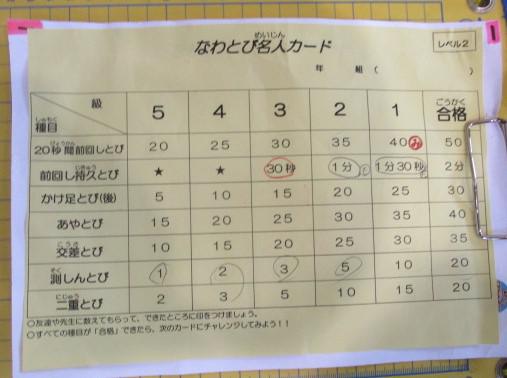 なわとび名人カード
めいじん
レベル2
年 組 ( )
級 5 4 3 2 1 合格
ごうかく
しゅもく
種目
20秒間前回しとび 20 25 30 35 40 み 50
びょうかん
前回し持久とび ★ ★ 30秒 1分 1分30秒 2分
じきゅう
かけ足とび(後) 5 10 15 20 25 30
あやとび 15 20 25 30 35 40
交差とび 10 15 20 25 30 35
こうさ
測しんとび 1 2 3 5 10 20
そく
二重とび 2 3 5 10 15 20
にじゅう
○友達や先生に数えてもらって、できたところに印をつけましょう。
○すべての種目が「合格」できたら、次のカードにチャレンジしてみよう！！